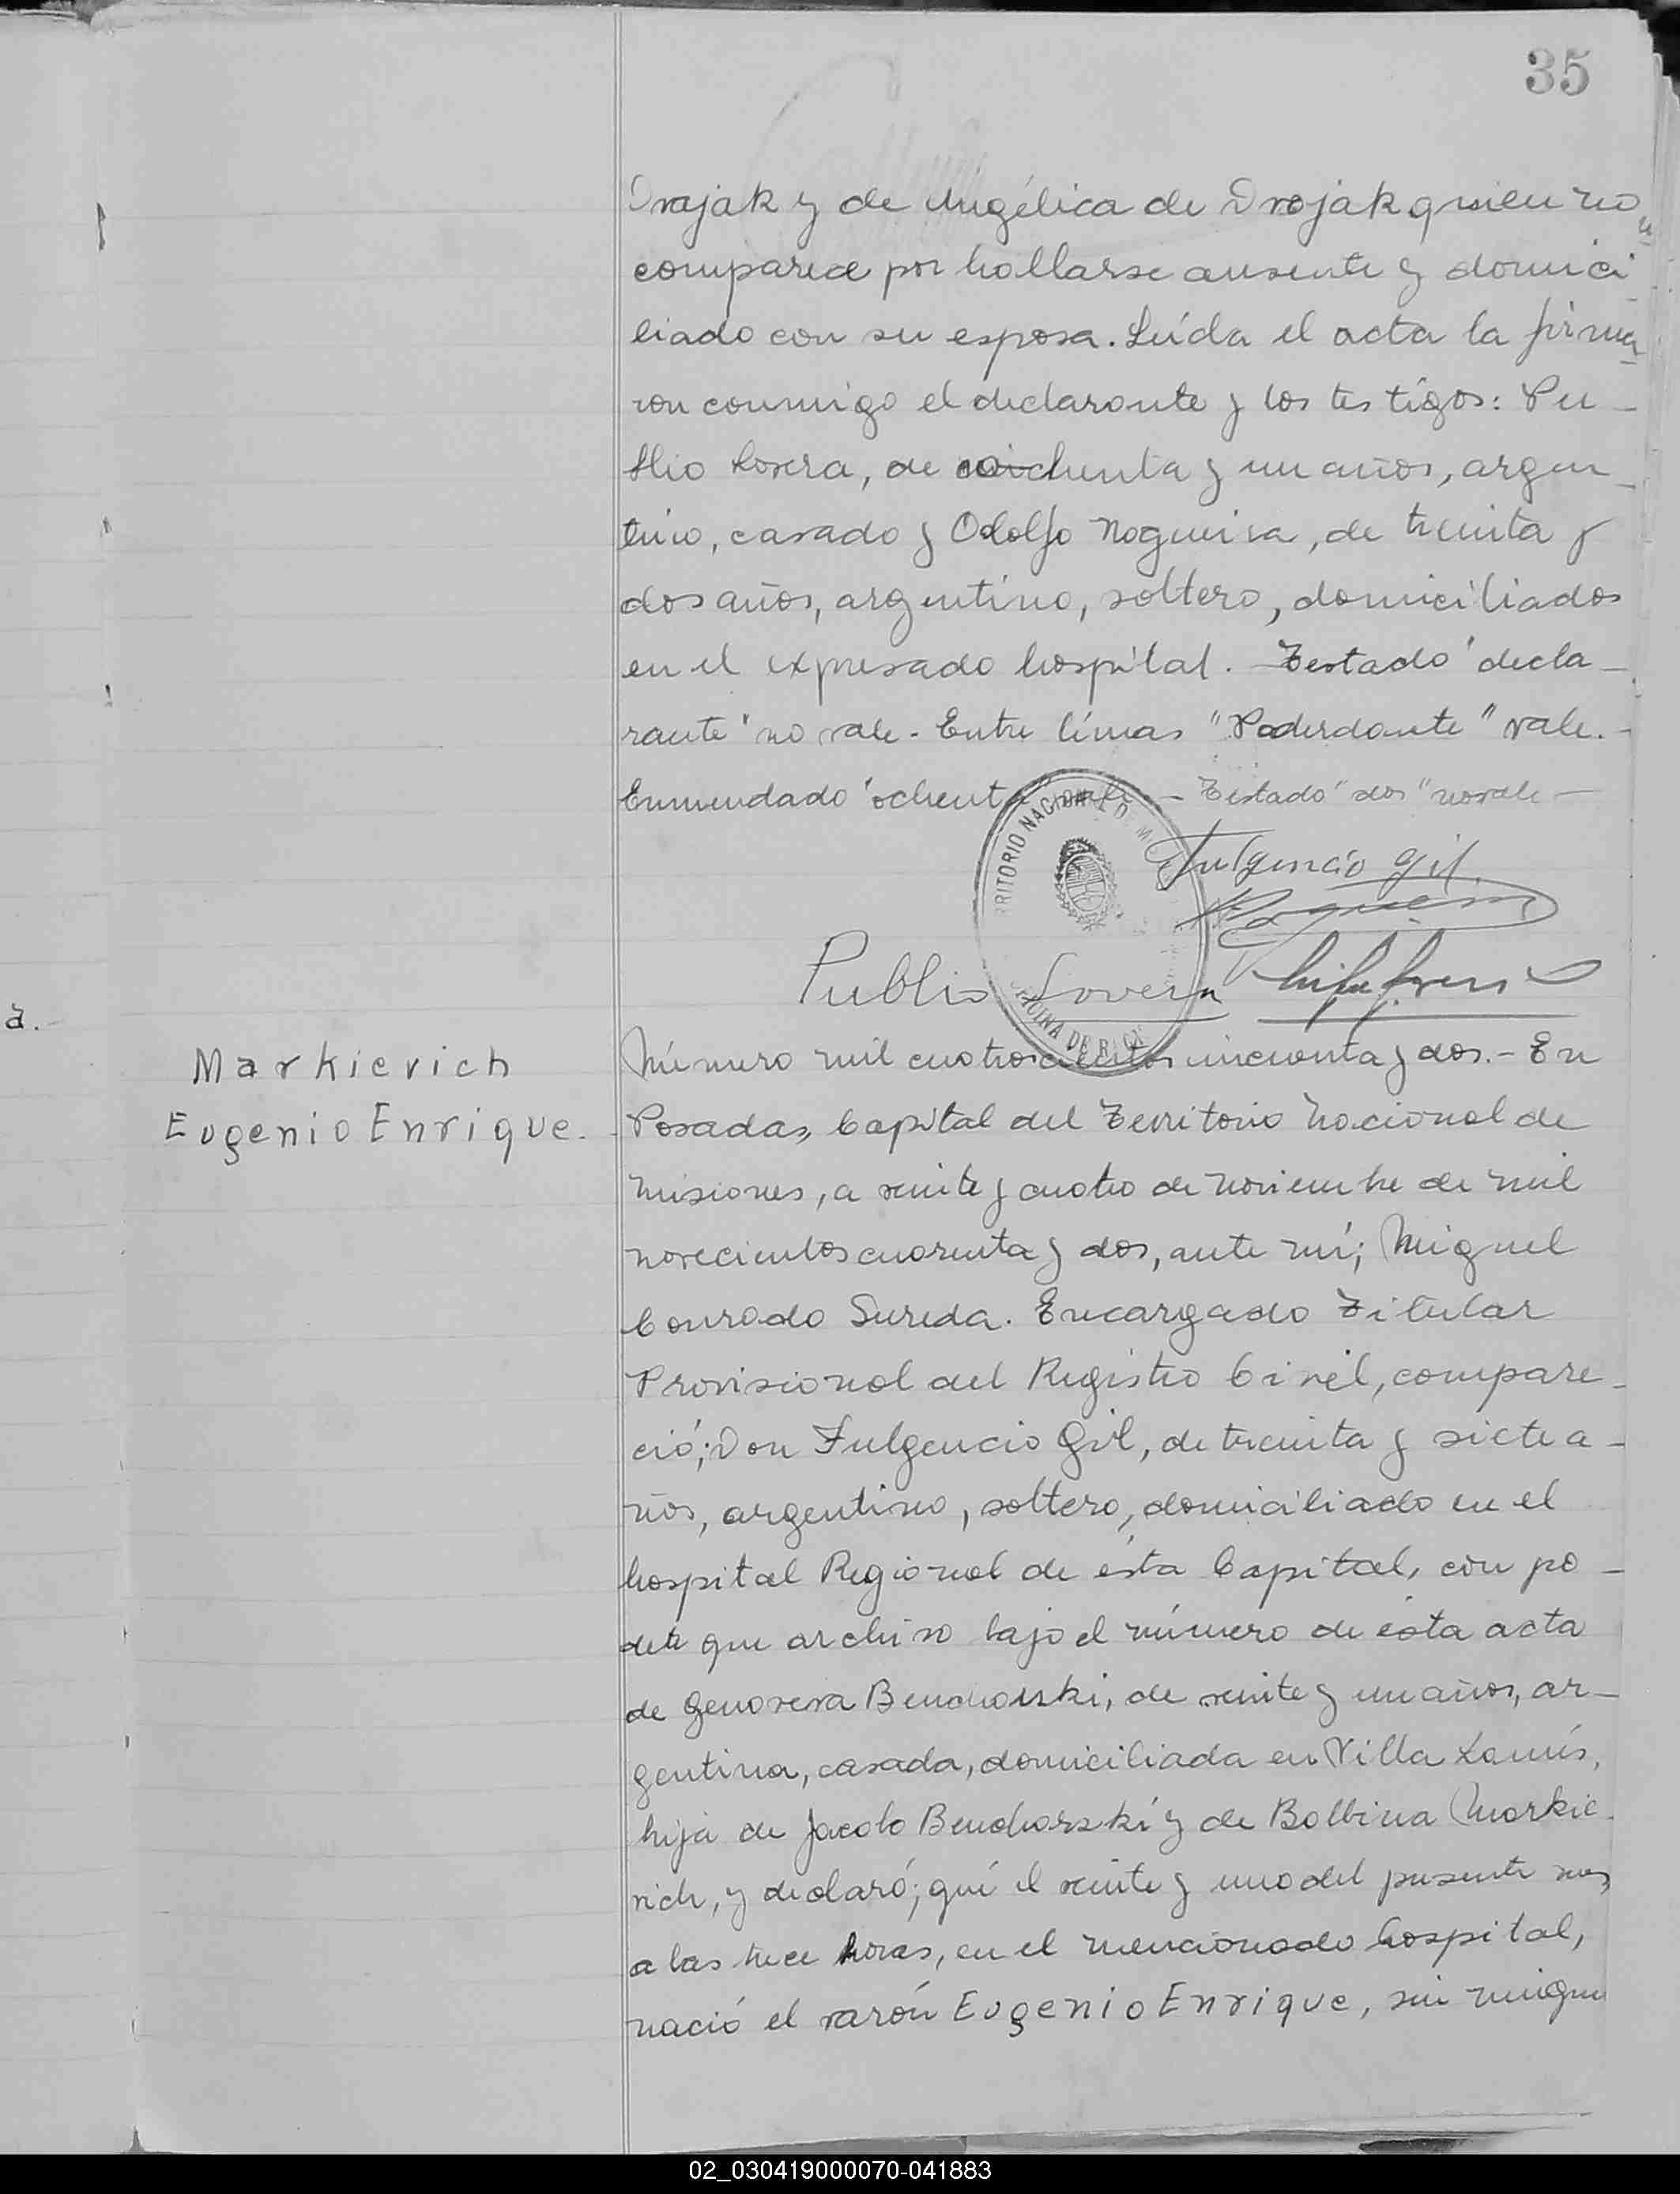 35
Drajak y de Angélica de Drojak quien no
comparece por hallarse ausente y domici
liado con su esposa. Leída el acta la firma
ron conmigo el declarante y los testigos: Pu-
blio Lovera, de ochenta y un años, argen-
tino, casado y Odolfo Nogueira, de treinta y
dos años, argentino, soltero, domiciliados
en el expresado hospital. Testado "decla-
rante" no vale. Entre líneas "Poderdante" vale.-
Enmendado "ochenta" vale - Testado "dos" no vale -
TERRITORIO NACIONAL DE
Fulgencio Gil.
Publio Lovera
OFICINA DE
a.
Markievich
Eugenio Enrique.
Número mil cuatrocientos cincuenta y dos.- En
Posadas, Capital del Territorio Nacional de
Misiones, a veinte y cuatro de Noviembre de mil
novecientos cuarenta y dos, ante mí; Miguel
Conrado Sureda. Encargado Titular
Provisional del Registro Civil, compare-
ció; Don Fulgencio Gil, de treinta y siete a-
ños, argentino, soltero, domiciliado en el
hospital Regional de ésta Capital, con po-
der que archivo bajo el número de ésta acta
de Genoveva Bendiorski, de veinte y un años, ar-
gentina, casada, domiciliada en Villa Lanús,
hija de Jacobo Bendiorski y de Balbina Markie-
vich, y declaró; qué el veinte y uno del presente mes,
a las trece horas, en el mencionado hospital,
nació el varón Eugenio Enrique, sin ningun
02_030419000070-041883